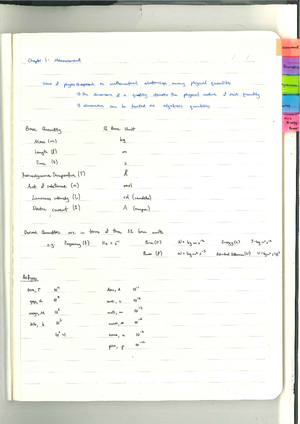 Chapter 1: Measurement
Laws of physics expressed as mathematical relationships among physical quantities
the dimension of a quantity denotes the physical nature of that quantity
dimensions can be treated as algebraic quantities
Base Quantity SI Base Unit
Mass (m) kg
Length (l) m
Time (t) s
Thermodynamic Temperature (T) K
Amt. of substance (n) mol
Luminous intensity (L) cd (candela)
Electric current (I) A (ampere)
Derived Quantities are in terms of these SI base units
e.g. Frequency (f) Hz = s⁻¹ Force (F) N = kg m s⁻² Energy (E)
Power (P) W =
Prefixes
tera, T 10¹² deci, d 10⁻¹
giga, G 10⁹ centi, c 10⁻²
mega, M 10⁶ milli, m 10⁻³
kilo, k 10³ micro, μ 10⁻⁶
nano, n 10⁻⁹
pico, p 10⁻¹²